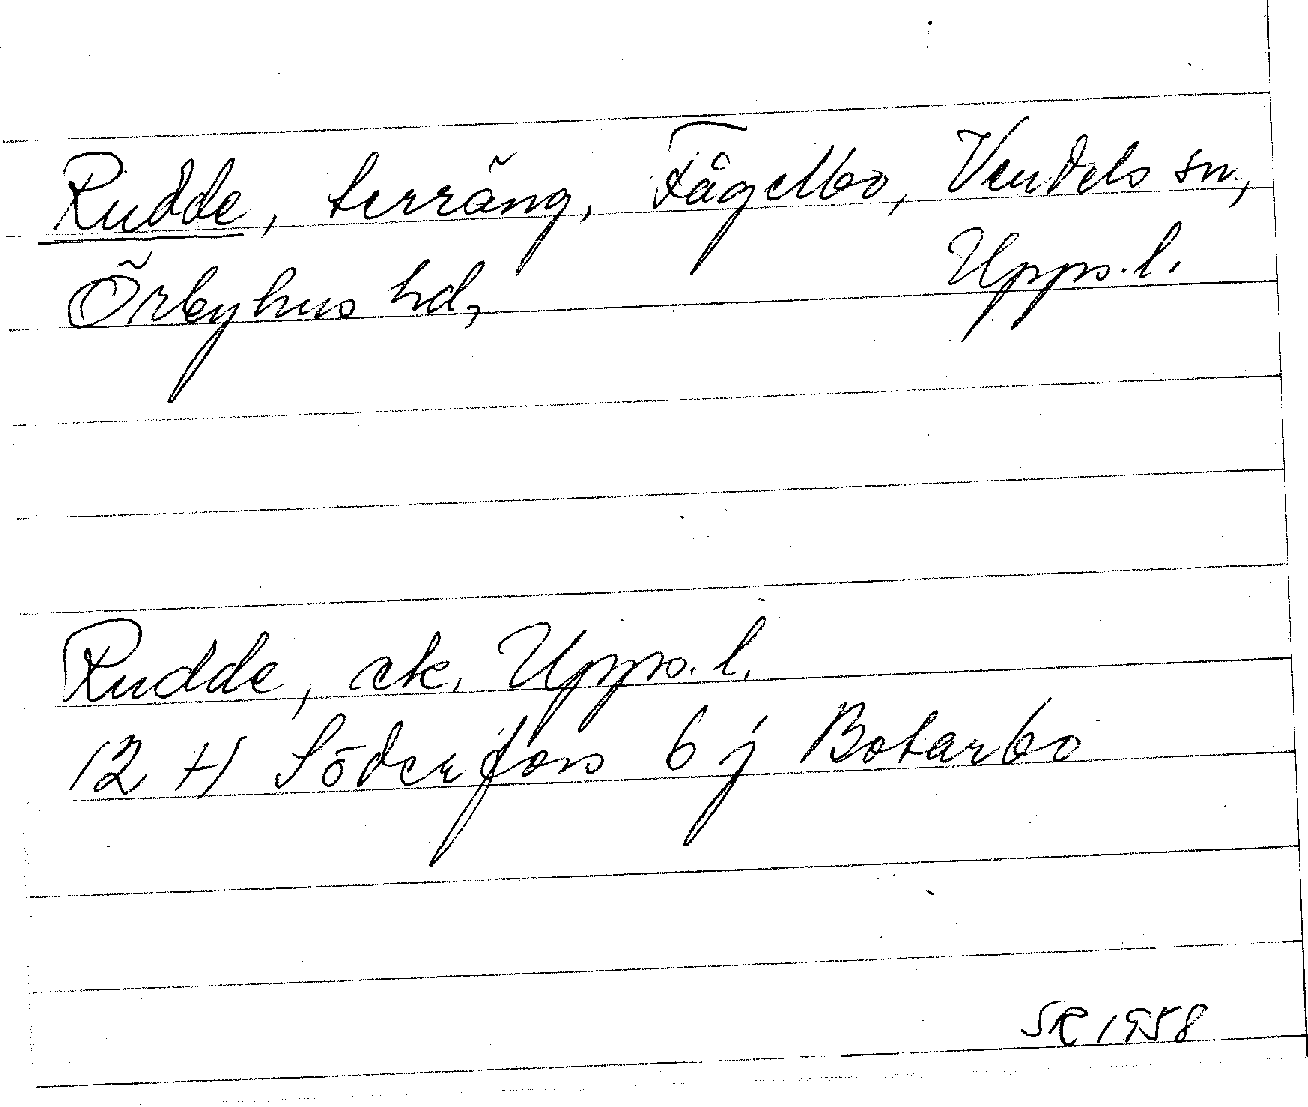 Rudde, terräng, Fågelbo, Vendels sn,
Örbyhus hd, Upps. l.
Rudde, ek. Upps. l.
12 H Söderfors 6 j Botarbo
SR 1958